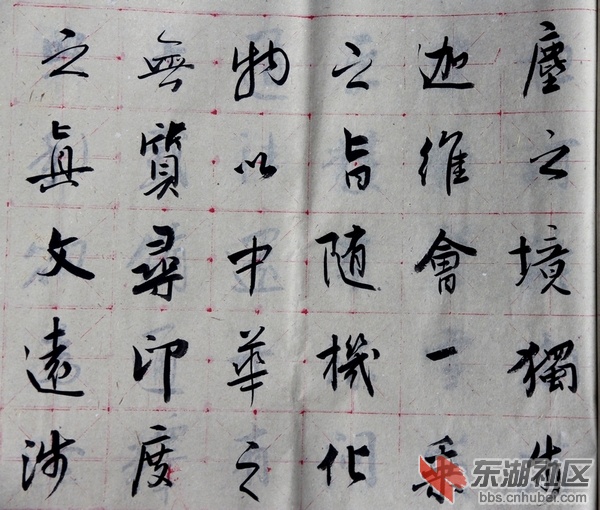 塵之境獨步
迦維會一乘
之旨随機化
物以中華之
無質尋印度
之真文遠涉
东湖社区
bbs.cnhubei.com